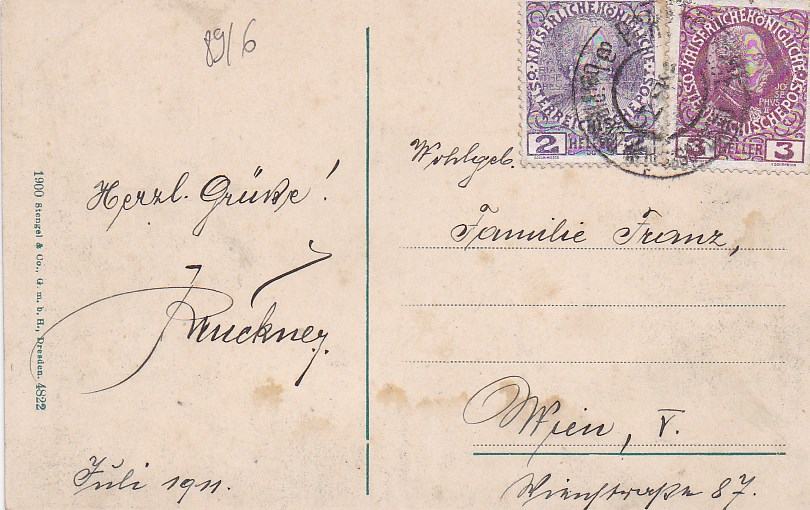 89/6
Herzl. Grüße!
Juli 1911.
1900 Stengel & Co., G. m. b. H., Dresden. 4822
KAISERLICHE KÖNIGLICHE
ÖSTERREICHISCHE POST
2 HELLER 2
KAISERLICHE KÖNIGLICHE
ÖSTERREICHISCHE POST
JOSEPHVS II
3 HELLER 3
Wohlgeb.
Familie Franz,
Wien, V.
Wienstraße 87.